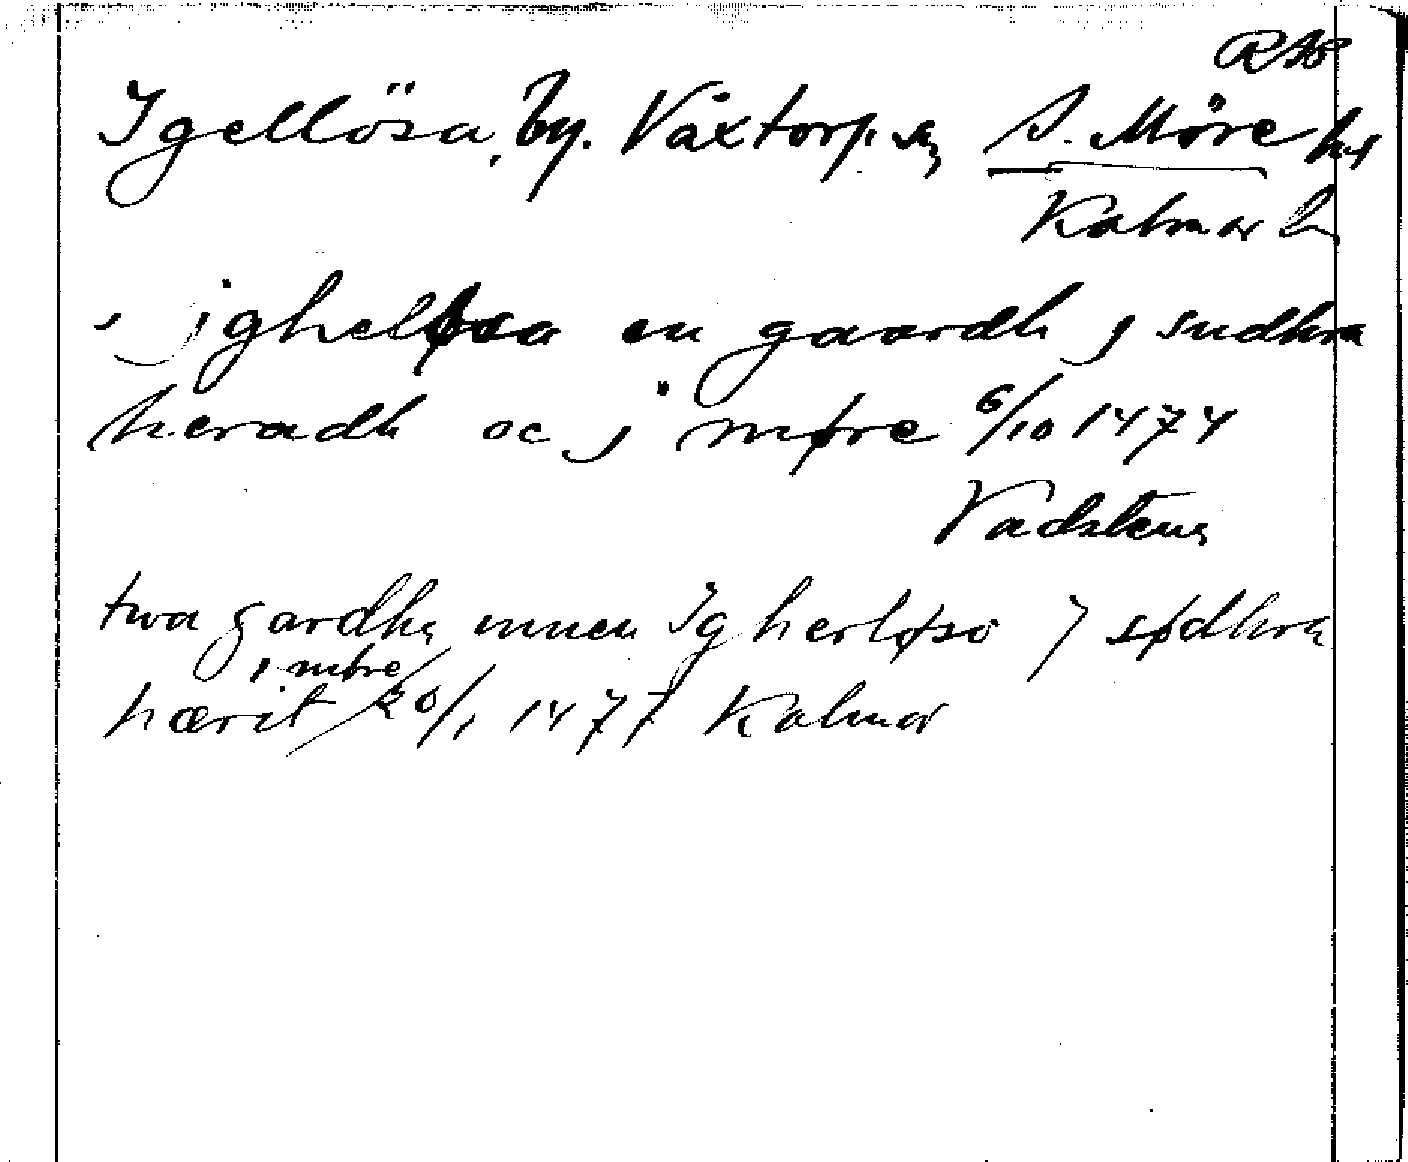 RAP
Igellösa, by. Växtorp sn S. Möre hd
Kalmar län
i jgheløsa en gaardh j sudhra
heradh oc j møre 6/10 1474
Vadstena
twa gardha innen Igherløso j sødhra
i møre
hærit 20/1 1477 Kalmar